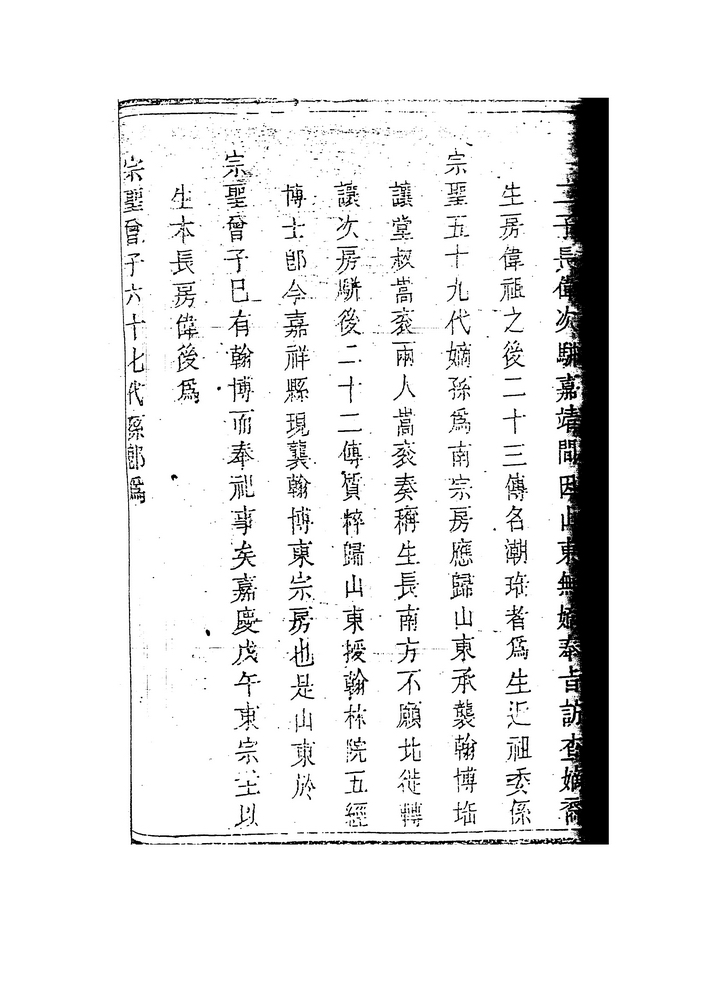 二子長偉次駢嘉靖間因山東無嫡奉旨訪查嫡裔
生房偉祖之後二十三傳名潮珤者爲生近祖委係
宗聖五十九代嫡孫爲南宗房應歸山東承襲翰博珤
讓堂叔嵩袞兩人嵩袞奏稱生長南方不願北徙轉
讓次房駢後二十二傳質粹歸山東授翰林院五經
博士郎今嘉祥縣現襲翰博東宗房也是山東於
宗聖曾子已有翰博而奉祀事矣嘉慶戊午東宗主以
生本長房偉後爲
宗聖曾子六十七代孫郎爲